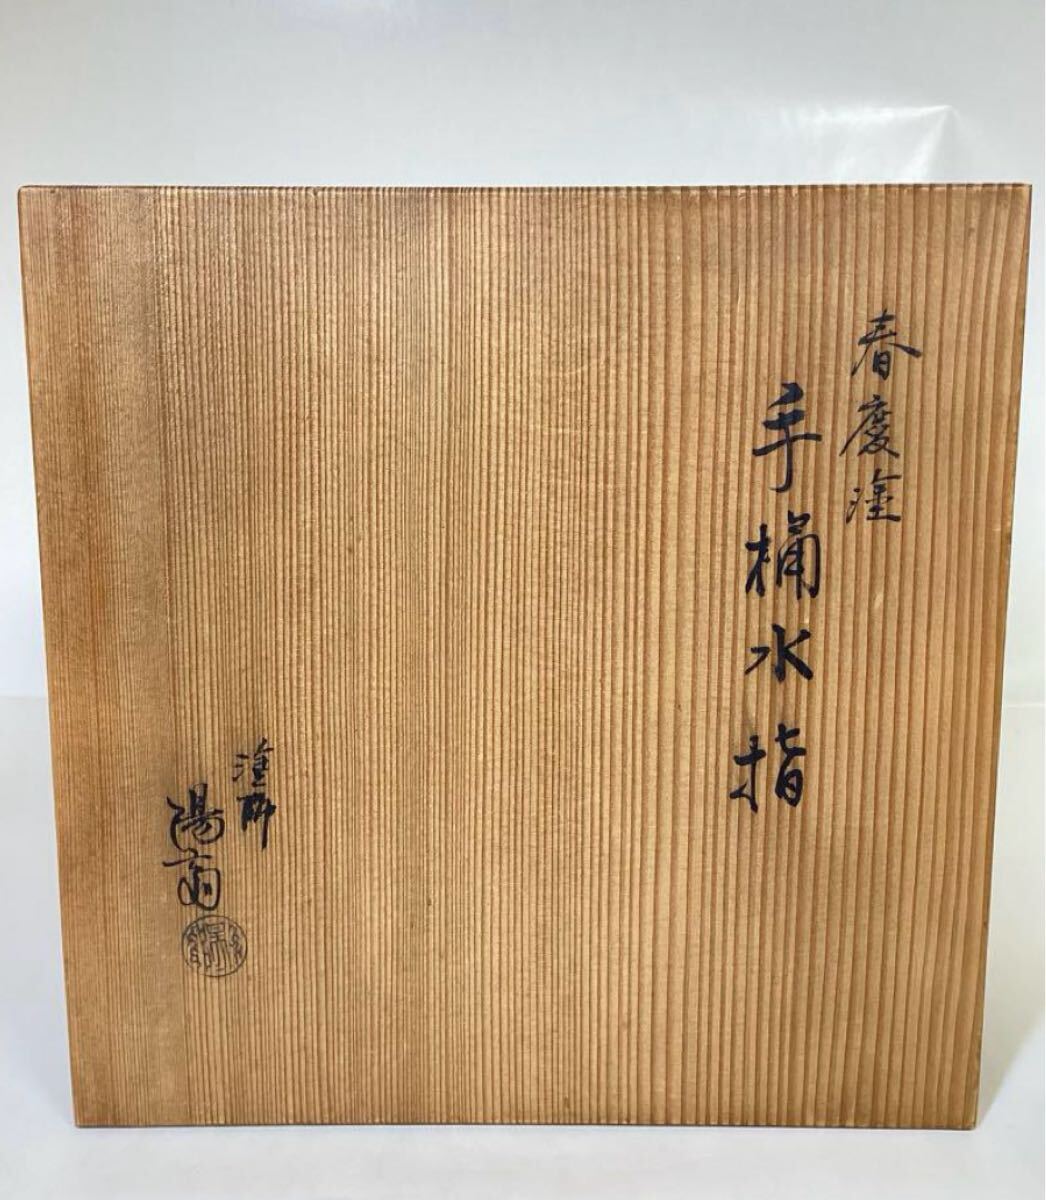 春慶塗
手桶水指
塗師
陽斎